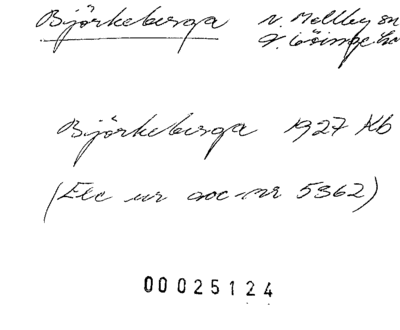 Björkeberga N. Mellby sn
V. Göinge hd
Björkeberga 1927 Kb
(Exc ur acc-nr 5362)
00025124